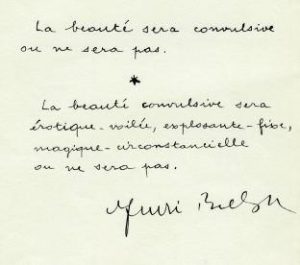 La beauté sera convulsive
ou ne sera pas.
*
La beauté convulsive sera
érotique-voilée, explosante-fixe,
magique-circonstancielle
ou ne sera pas.